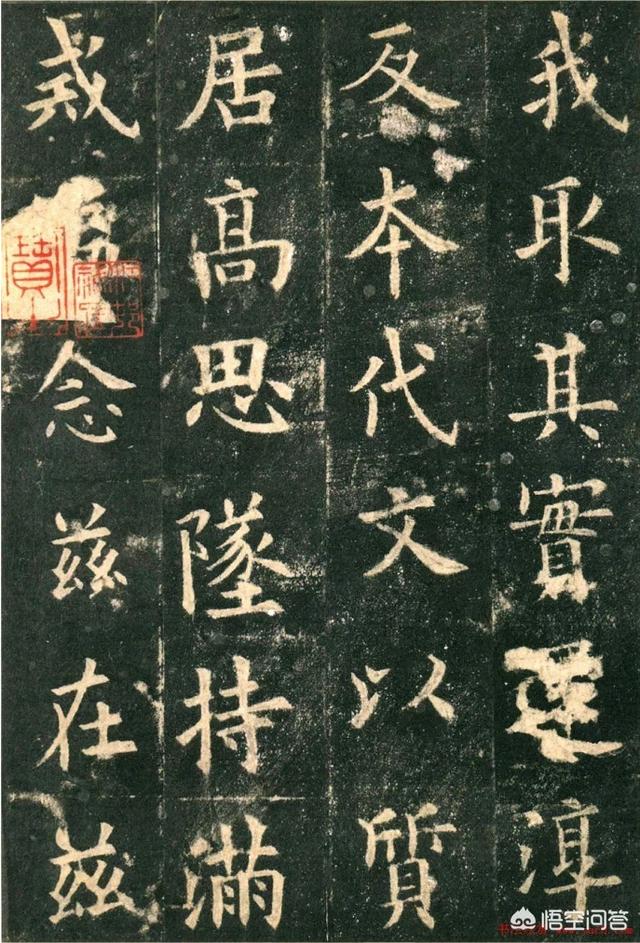 我取其實還淳
反本代文以質
居高思墜持滿
戒念茲在茲
悟空问答